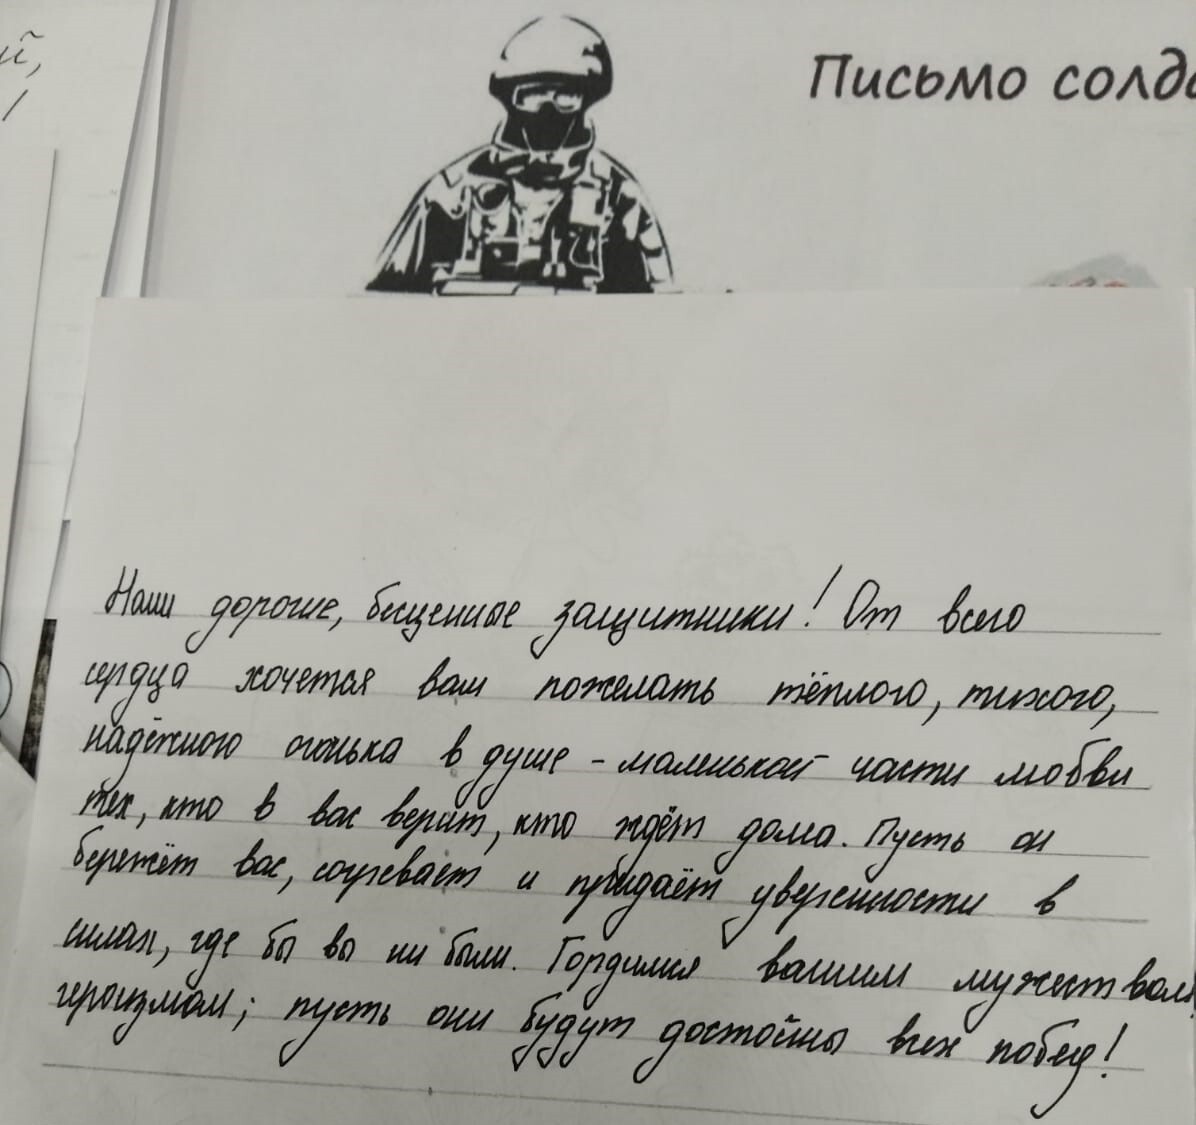 й,
Письмо солда
Наши дорогие, бесценные защитники! От всего
сердца хочется вам пожелать тёплого, тихого,
надёжного огонька в душе - маленькой части любви
тех, кто в вас верит, кто ждёт дома. Пусть он
бережёт вас, согревает и придаёт уверенности в
силах, где бы вы ни были. Гордимся вашим мужеством,
героизмом; пусть они будут достойны всех побед!